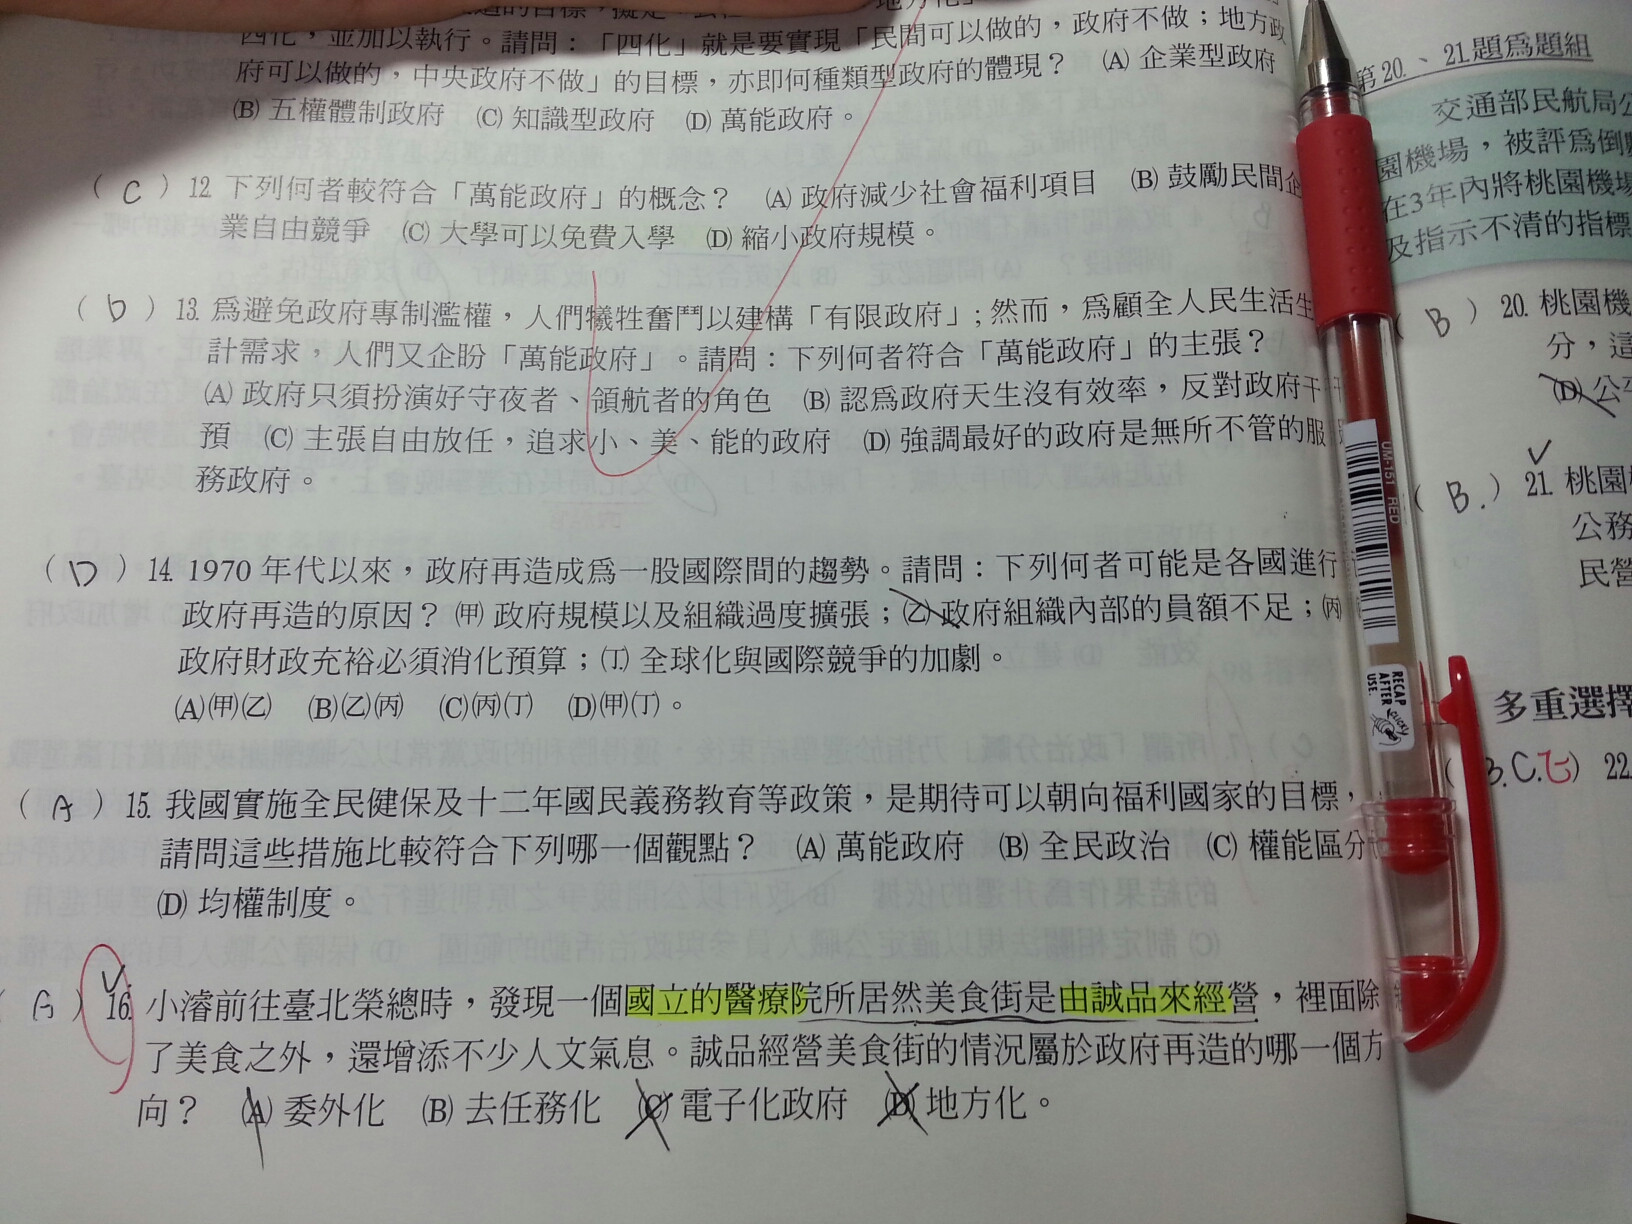 四化，並加以執行。請問：「四化」就是要實現「民間可以做的，政府不做；地方政
府可以做的，中央政府不做」的目標，亦即何種類型政府的體現？ (A) 企業型政府
(B) 五權體制政府 (C) 知識型政府 (D) 萬能政府。
( C ) 12. 下列何者較符合「萬能政府」的概念？ (A) 政府減少社會福利項目 (B) 鼓勵民間企
業自由競爭 (C) 大學可以免費入學 (D) 縮小政府規模。
( D ) 13. 為避免政府專制濫權，人們犧牲奮鬥以建構「有限政府」；然而，為顧全人民生活生
計需求，人們又企盼「萬能政府」。請問：下列何者符合「萬能政府」的主張？
(A) 政府只須扮演好守夜者、領航者的角色 (B) 認為政府天生沒有效率，反對政府干
預 (C) 主張自由放任，追求小、美、能的政府 (D) 強調最好的政府是無所不管的服
務政府。
( D ) 14. 1970 年代以來，政府再造成為一股國際間的趨勢。請問：下列何者可能是各國進行
政府再造的原因？(甲) 政府規模以及組織過度擴張；(乙) 政府組織內部的員額不足；(丙)
政府財政充裕必須消化預算；(丁) 全球化與國際競爭的加劇。
(A)(甲)(乙) (B)(乙)(丙) (C)(丙)(丁) (D)(甲)(丁)。
( A ) 15. 我國實施全民健保及十二年國民義務教育等政策，是期待可以朝向福利國家的目標，
請問這些措施比較符合下列哪一個觀點？ (A) 萬能政府 (B) 全民政治 (C) 權能區分
(D) 均權制度。
16. 小濬前往臺北榮總時，發現一個國立的醫療院所居然美食街是由誠品來經營，裡面除
了美食之外，還增添不少人文氣息。誠品經營美食街的情況屬於政府再造的哪一個方
向？ (A) 委外化 (B) 去任務化 (C) 電子化政府 (D) 地方化。
UM-151 RED
RECAP
AFTER
USE.
第 20.、21.題為題組
交通部民航局
園機場，被評為倒
在3年內將桃園機場
及指示不清的指標
( B ) 20. 桃園機
分，這
(D) 公
( B. ) 21. 桃園
公務
民營
多重選擇
22.